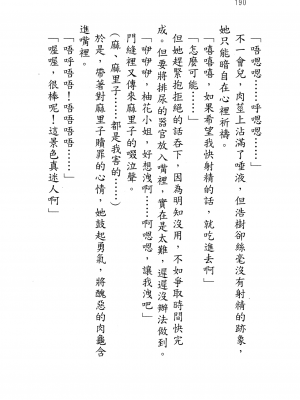 190
「唔嗯嗯……呼嗯嗯……」
不一會兒，肉莖上沾滿了唾液，但浩樹卻絲毫沒有射精的跡象，
她只能暗自在心裡祈禱。
「嘻嘻嘻，如果希望我快射精的話，就吃進去啊」
「怎麼可能……」
但她趕緊抱拒絕的話吞下，因為明知沒用，不如爭取時間快完
成。但要將排尿的器官放入嘴裡，實在是太難，遲遲沒辦法做到。
「咿咿咿，柚花小姐，好想洩啊……啊嗯嗯，讓我洩吧」
門縫裡又傳來麻里子的啜泣聲。
（麻、麻里子……都是我害的……）
於是，帶著對麻里子贖罪的心情，她鼓起勇氣，將醜惡的肉龜含
進嘴裡。
「唔呼唔唔！唔唔唔……」
「喔喔，很棒呢！這景色真迷人啊」